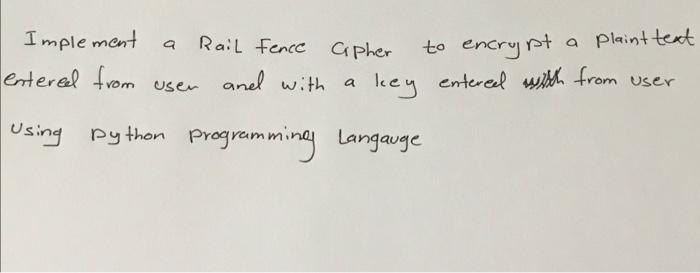 Implement a Rail Fence Cipher to encrypt a plainttext
entered from user and with a key entered with from user
Using python programming Langauge